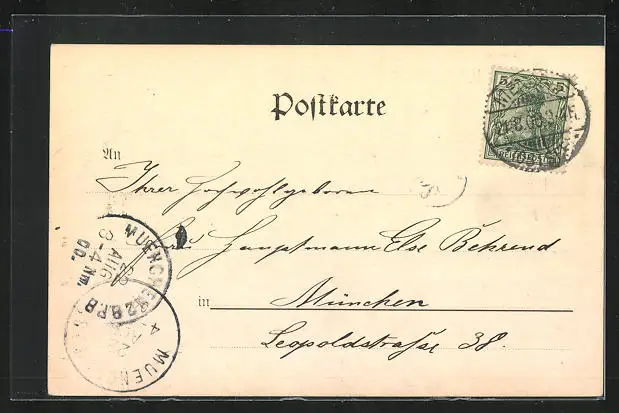 Postkarte
5 5
An
Ihrer Hochwohlgeboren
Frau Hauptmann Else Behrend
in München
Leopoldstraße 38.
MUENCHEN
AUG
3-4 Nm.
00.
MUEN